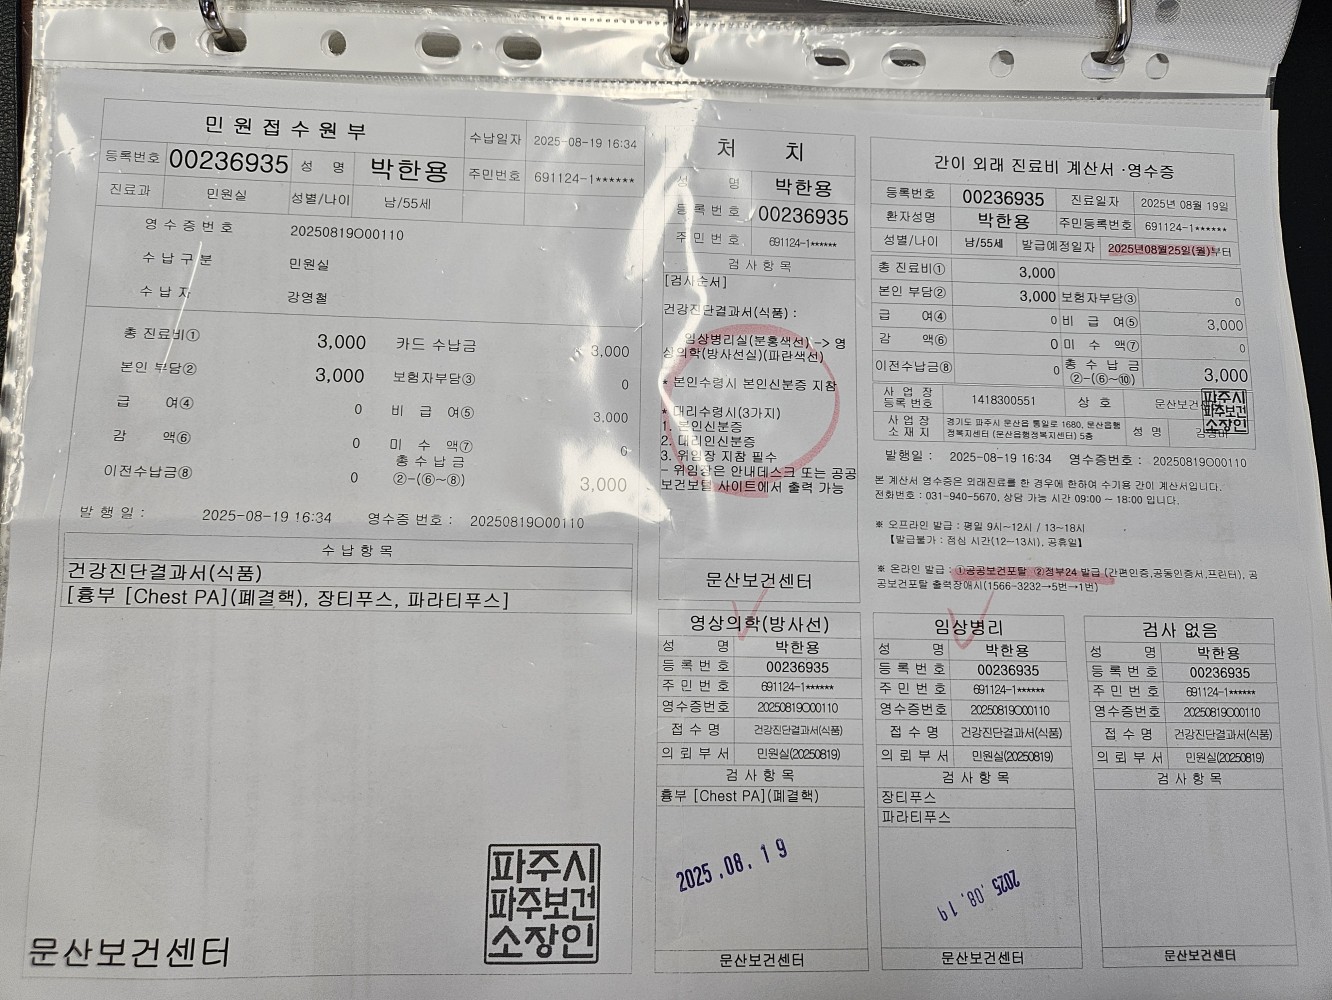 민원접수원부
수납일자 2025-08-19 16:34
등록번호 00236935 성 명 박한용 주민번호 691124-1******
진료과 민원실 성별/나이 남/55세
영수증번호 20250819O00110
수납구분 민원실
수납자 강영철
총 진료비① 3,000 카드 수납금 3,000
본인 부담② 3,000 보험자부담③ 0
급 여④ 0 비 급 여⑤ 3,000
감 액⑥ 0 미 수 액⑦ 0
이전수납금⑧ 0 총 수 납 금 ②-(⑥~⑧) 3,000
발 행 일 : 2025-08-19 16:34 영수증 번호 : 20250819O00110
수 납 항 목
건강진단결과서(식품)
[흉부 [Chest PA](폐결핵), 장티푸스, 파라티푸스]
파주시
파주보건
소장인
문산보건센터
처 치
성 명 박한용
등 록 번 호 00236935
주 민 번 호 691124-1******
검 사 항 목
[검사순서]
건강진단결과서(식품) :
임상병리실(분홍색선) -> 영
상의학(방사선실)(파란색선)
* 본인수령시 본인신분증 지참
* 대리수령시(3가지)
1. 본인신분증
2. 대리인신분증
3. 위임장 지참 필수
- 위임장은 안내데스크 또는 공공
보건포털 사이트에서 출력 가능
문산보건센터
간이 외래 진료비 계산서 ·영수증
등록번호 00236935 진료일자 2025년 08월 19일
환자성명 박한용 주민등록번호 691124-1******
성별/나이 남/55세 발급예정일자 2025년08월25일(월)부터
총 진료비① 3,000
본인 부담② 3,000 보험자부담③ 0
급 여④ 0 비 급 여⑤ 3,000
감 액⑥ 0 미 수 액⑦ 0
이전수납금⑧ 0 총 수 납 금 ②-(⑥~⑩) 3,000
사 업 장 등록 번호 1418300551 상 호 문산보건
사 업 장 소 재 지 경기도 파주시 문산읍 통일로 1680, 문산읍행정복지센터 (문산읍행정복지센터) 5층 성 명
파주시
파주보건
소장인
발행일 : 2025-08-19 16:34 영수증번호 : 20250819O00110
본 계산서 영수증은 외래진료를 한 경우에 한하여 수기용 간이 계산서입니다.
전화번호 : 031-940-5670, 상담 가능 시간 09:00 ~ 18:00 입니다.
※ 오프라인 발급 : 평일 9시~12시 / 13~18시
【발급불가 : 점심 시간(12~13시), 공휴일】
※ 온라인 발급 : ①공공보건포탈 ②정부24 발급 (간편인증,공동인증서,프린터), 공
공보건포탈 출력장애시(1566-3232→5번→1번)
영상의학(방사선)
성 명 박한용
등 록 번 호 00236935
주 민 번 호 691124-1******
영수증번호 20250819O00110
접 수 명 건강진단결과서(식품)
의 뢰 부 서 민원실(20250819)
검 사 항 목
흉부 [Chest PA](폐결핵)
2025.08.19
문산보건센터
임상병리
성 명 박한용
등 록 번 호 00236935
주 민 번 호 691124-1******
영수증번호 20250819O00110
접 수 명 건강진단결과서(식품)
의 뢰 부 서 민원실(20250819)
검 사 항 목
장티푸스
파라티푸스
2025.08.19
문산보건센터
검사 없음
성 명 박한용
등 록 번 호 00236935
주 민 번 호 691124-1******
영수증번호 20250819O00110
접 수 명 건강진단결과서(식품)
의 뢰 부 서 민원실(20250819)
검 사 항 목
문산보건센터